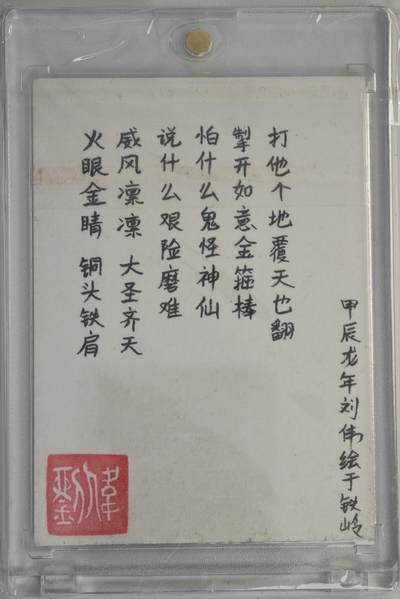 火眼金睛 铜头铁肩
威风凛凛 大圣齐天
说什么艰险磨难
怕什么鬼怪神仙
掣开如意金箍棒
打他个地覆天也翻
甲辰龙年刘伟绘于铁岭
劉偉